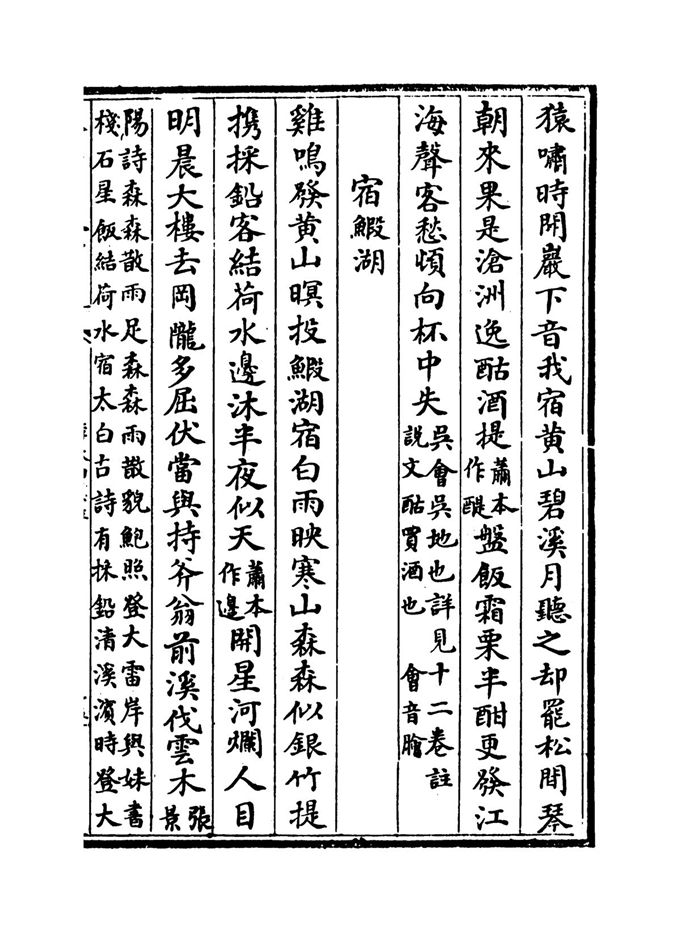 猿嘯時聞巖下音我宿黃山碧溪月聽之却罷松間琴
朝來果是滄洲逸酤酒提蕭本作醍盤飯霜栗半酣更發江
海聲客愁頓向杯中失吳會吳地也詳見十二卷註說文酤買酒也 會音膾
宿鰕湖
雞鳴發黃山暝投鰕湖宿白雨映寒山森森似銀竹提
携採鉛客結荷水邊沐半夜似天蕭本作邊開星河爛人目
明晨大樓去岡隴多屈伏當與持斧翁前溪伐雲木張景
陽詩森森散雨足森森雨散貌鮑照登大雷岸與妹書
棧石星飯結荷水宿太白古詩有採鉛清溪濱時登大